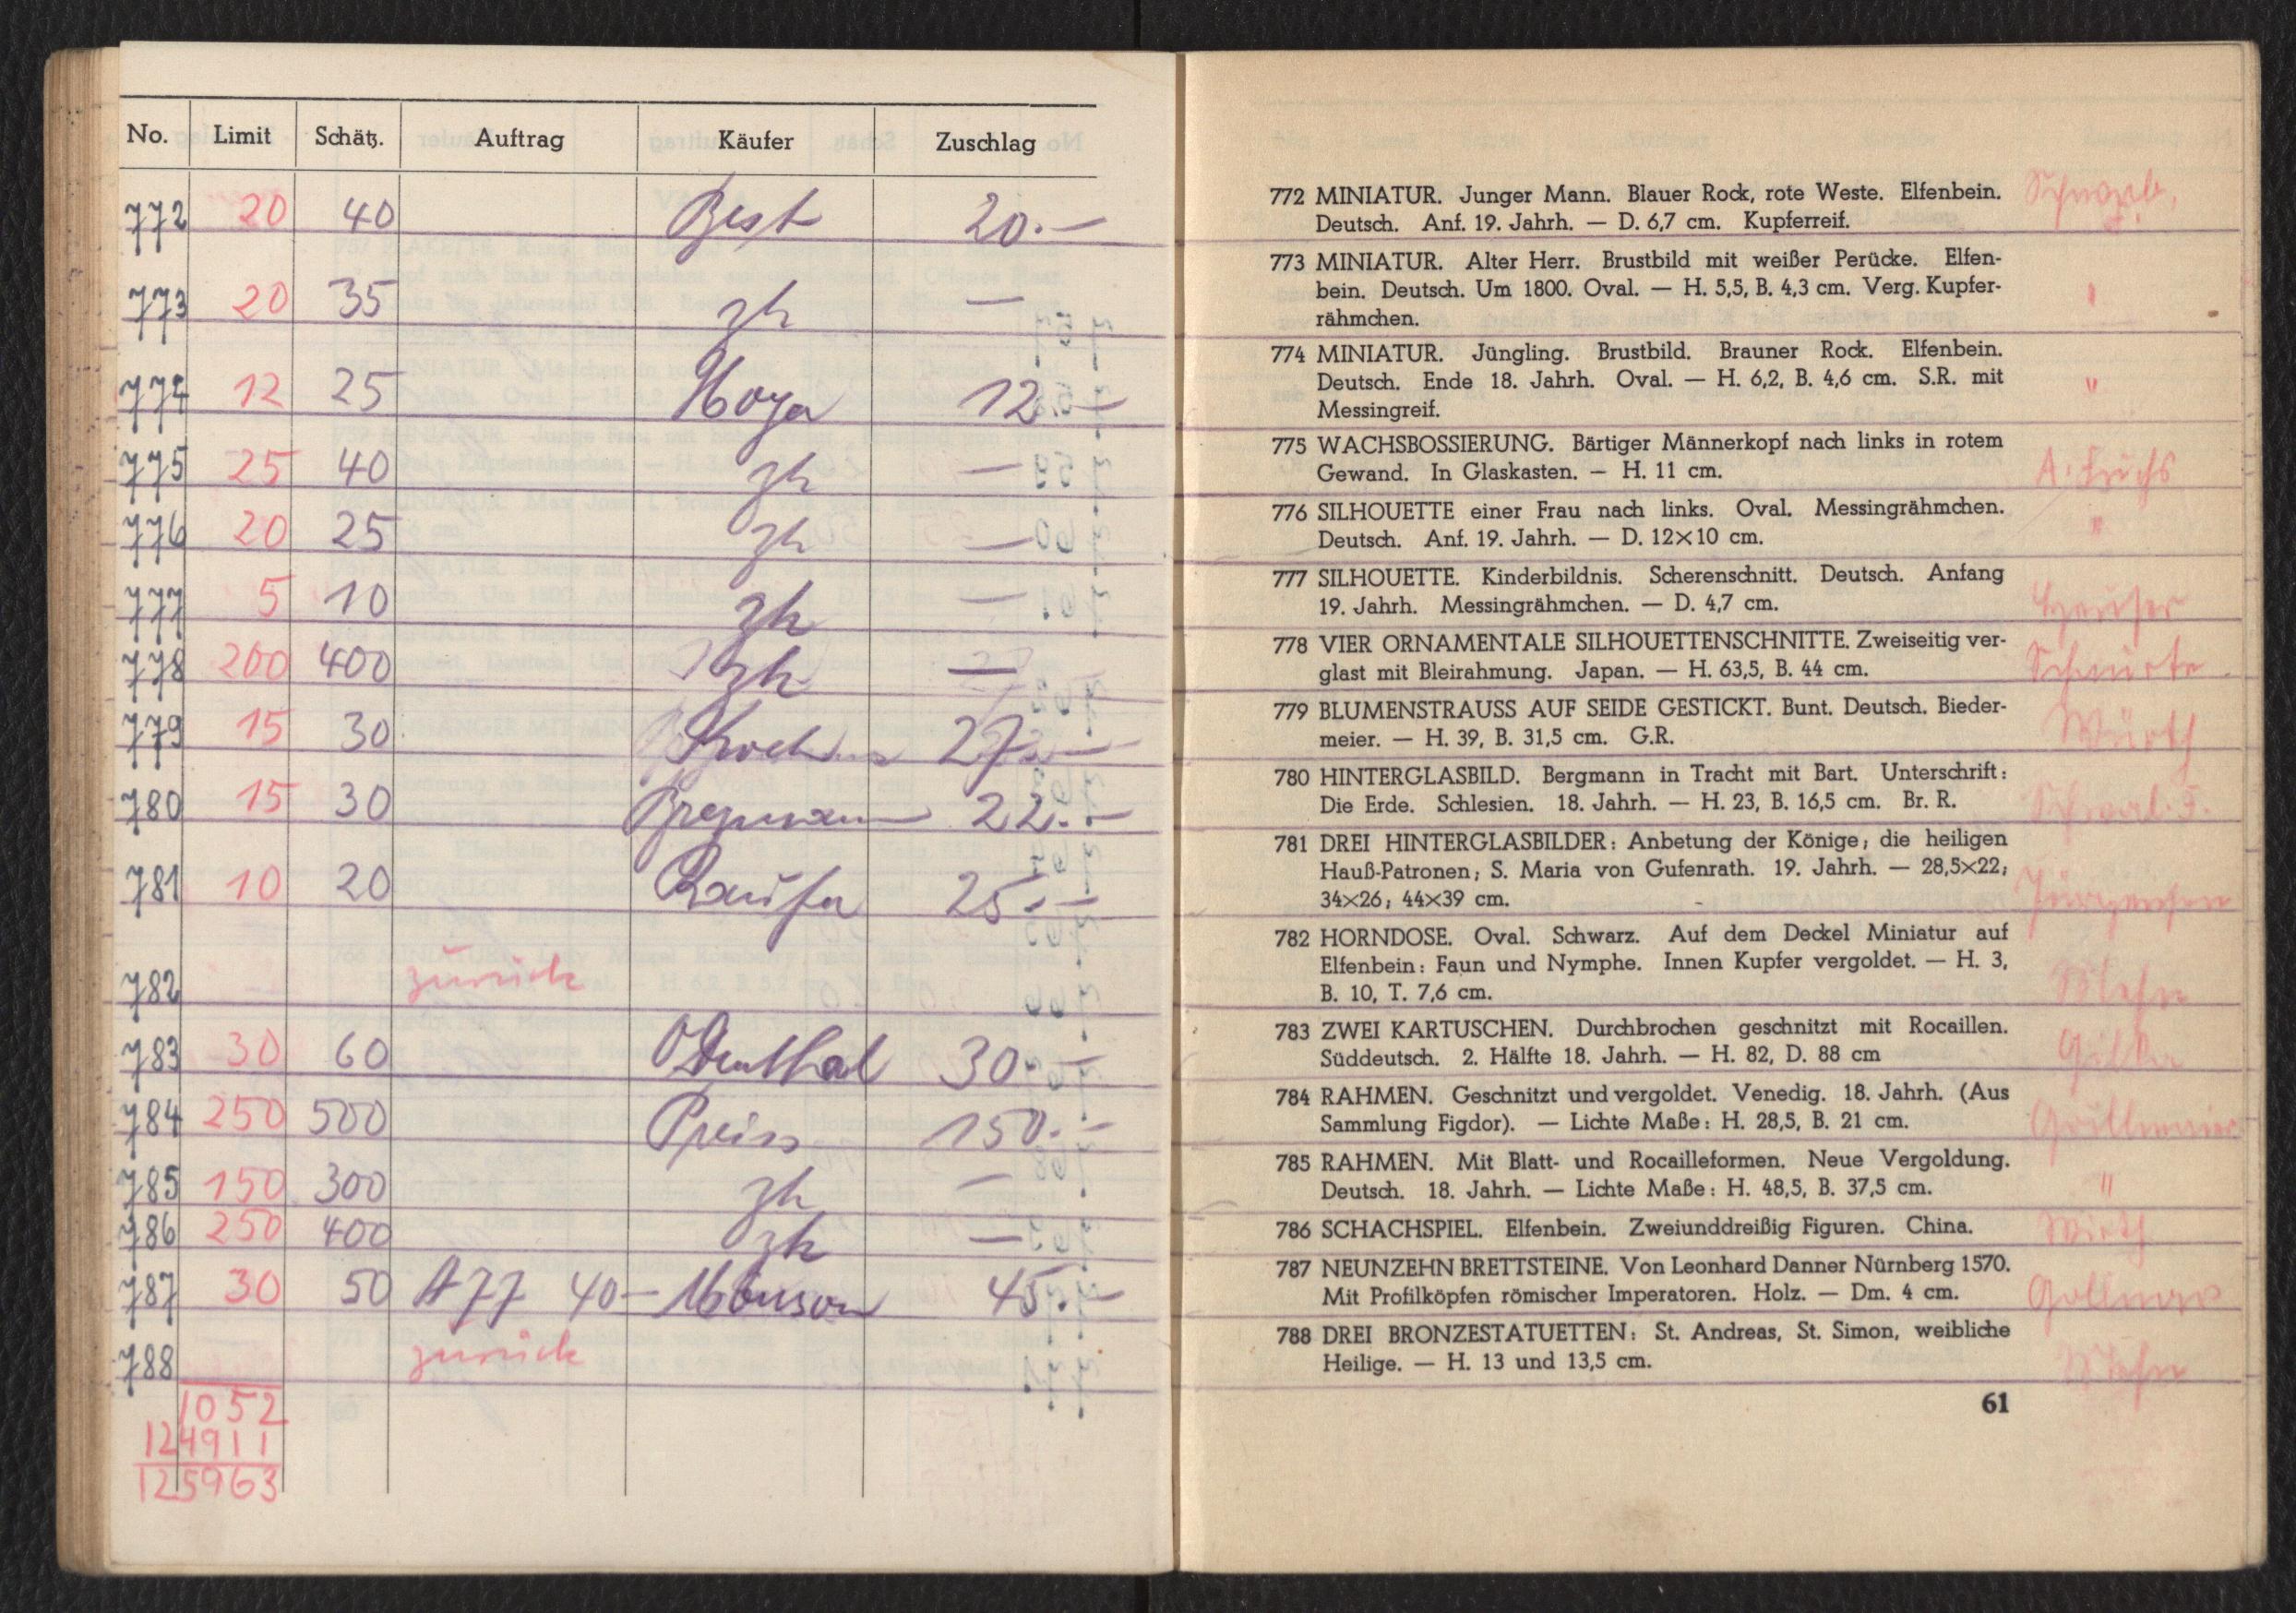 No. Limit Schätz. Auftrag Käufer Zuschlag
772 20 40 Best 20.—
773 20 35 zh —
774 12 25 Hoya 12.—
775 25 40 zh —
776 20 25 zh —
777 5 10 zh —
778 200 400 zh —
779 15 30 27.—
780 15 30 22.—
781 10 20 25.—
782 zurück
783 30 60 Odenthal 30.—
784 250 500 Preiss 150.—
785 150 300 zh —
786 250 400 zh —
787 30 50 A 77 40— Mouson 45.—
788 zurück
1052
124911
125963
772 MINIATUR. Junger Mann. Blauer Rock, rote Weste. Elfenbein.
Deutsch. Anf. 19. Jahrh. — D. 6,7 cm. Kupferreif.
773 MINIATUR. Alter Herr. Brustbild mit weißer Perücke. Elfen-
bein. Deutsch. Um 1800. Oval. — H. 5,5, B. 4,3 cm. Verg. Kupfer-
rähmchen. "
774 MINIATUR. Jüngling. Brustbild. Brauner Rock. Elfenbein.
Deutsch. Ende 18. Jahrh. Oval. — H. 6,2, B. 4,6 cm. S.R. mit "
Messingreif.
775 WACHSBOSSIERUNG. Bärtiger Männerkopf nach links in rotem
Gewand. In Glaskasten. — H. 11 cm. A. Fuchs
776 SILHOUETTE einer Frau nach links. Oval. Messingrähmchen. "
Deutsch. Anf. 19. Jahrh. — D. 12×10 cm.
777 SILHOUETTE. Kinderbildnis. Scherenschnitt. Deutsch. Anfang
19. Jahrh. Messingrähmchen. — D. 4,7 cm.
778 VIER ORNAMENTALE SILHOUETTENSCHNITTE. Zweiseitig ver-
glast mit Bleirahmung. Japan. — H. 63,5, B. 44 cm.
779 BLUMENSTRAUSS AUF SEIDE GESTICKT. Bunt. Deutsch. Bieder- Würth
meier. — H. 39, B. 31,5 cm. G.R.
780 HINTERGLASBILD. Bergmann in Tracht mit Bart. Unterschrift:
Die Erde. Schlesien. 18. Jahrh. — H. 23, B. 16,5 cm. Br. R.
781 DREI HINTERGLASBILDER: Anbetung der Könige; die heiligen
Hauß-Patronen; S. Maria von Gufenrath. 19. Jahrh. — 28,5×22;
34×26; 44×39 cm.
782 HORNDOSE. Oval. Schwarz. Auf dem Deckel Miniatur auf
Elfenbein: Faun und Nymphe. Innen Kupfer vergoldet. — H. 3,
B. 10, T. 7,6 cm.
783 ZWEI KARTUSCHEN. Durchbrochen geschnitzt mit Rocaillen.
Süddeutsch. 2. Hälfte 18. Jahrh. — H. 82, D. 88 cm
784 RAHMEN. Geschnitzt und vergoldet. Venedig. 18. Jahrh. (Aus
Sammlung Figdor). — Lichte Maße: H. 28,5, B. 21 cm.
785 RAHMEN. Mit Blatt- und Rocailleformen. Neue Vergoldung.
Deutsch. 18. Jahrh. — Lichte Maße: H. 48,5, B. 37,5 cm. "
786 SCHACHSPIEL. Elfenbein. Zweiunddreißig Figuren. China.
787 NEUNZEHN BRETTSTEINE. Von Leonhard Danner Nürnberg 1570.
Mit Profilköpfen römischer Imperatoren. Holz. — Dm. 4 cm.
788 DREI BRONZESTATUETTEN: St. Andreas, St. Simon, weibliche
Heilige. — H. 13 und 13,5 cm.
61